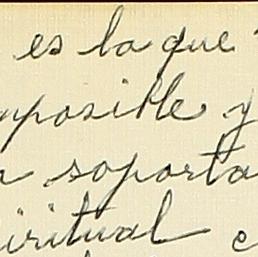 es la que
mposible y
soporta
iritual e